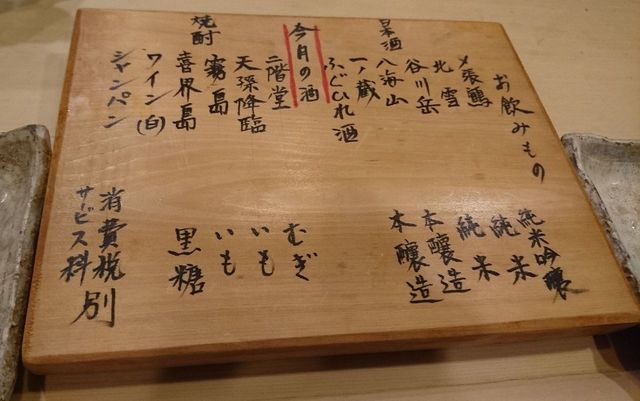 お飲みもの
日本酒
〆張鶴 純米吟醸
北雪 純米
谷川岳 純米
八海山 本醸造
一ノ蔵 本醸造
ふぐひれ酒
今月の酒
焼酎
二階堂 むぎ
天孫降臨 いも
霧島 いも
喜界島 黒糖
ワイン(白)
シャンパン
消費税
サービス料
別